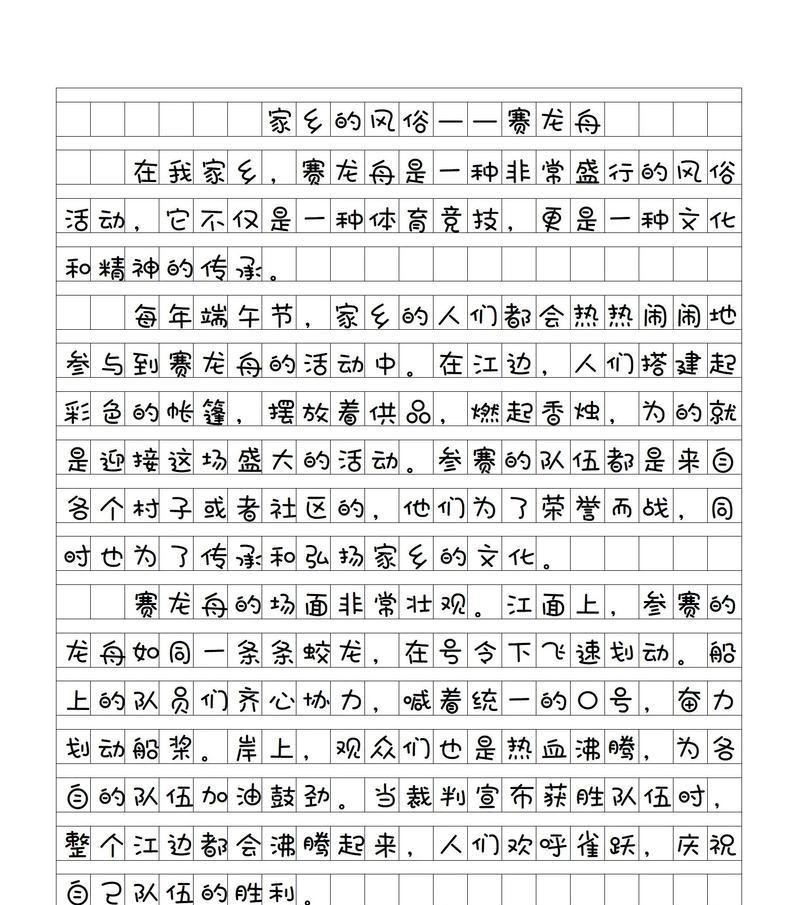 家乡的风俗——赛龙舟
在我家乡，赛龙舟是一种非常盛行的风俗
活动，它不仅是一种体育竞技，更是一种文化
和精神的传承。
每年端午节，家乡的人们都会热热闹闹地
参与到赛龙舟的活动中。在江边，人们搭建起
彩色的帐篷，摆放着供品，燃起香烛，为的就
是迎接这场盛大的活动。参赛的队伍都是来自
各个村子或者社区的，他们为了荣誉而战，同
时也为了传承和弘扬家乡的文化。
赛龙舟的场面非常壮观。江面上，参赛的
龙舟如同一条条蛟龙，在号令下飞速划动。船
上的队员们齐心协力，喊着统一的〇号，奋力
划动船桨。岸上，观众们也是热血沸腾，为各
自的队伍加油鼓劲。当裁判宣布获胜队伍时，
整个江边都会沸腾起来，人们欢呼雀跃，庆祝
自己队伍的胜利。